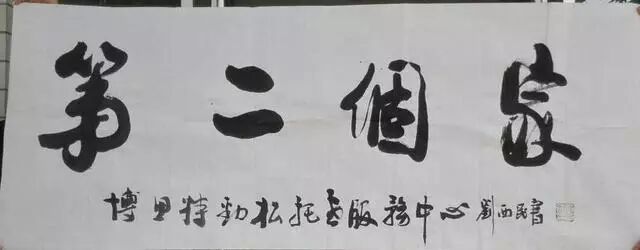 第二個家
博里特勁松托老服務中心 劉西民書